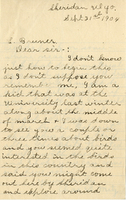 Sheridan, Wyo.
Sept. 21st 1904
Dear sir:-
I don't know
just how to begin this
as I don't suppose you
remember me. I am a
kid that was at the
University last winter
along about the middle
of march. I was down
to see you a couple or
three times about birds
and you seemed quite
interested in the birds
in this country and
said you might come
out here by sheridan
and explore around